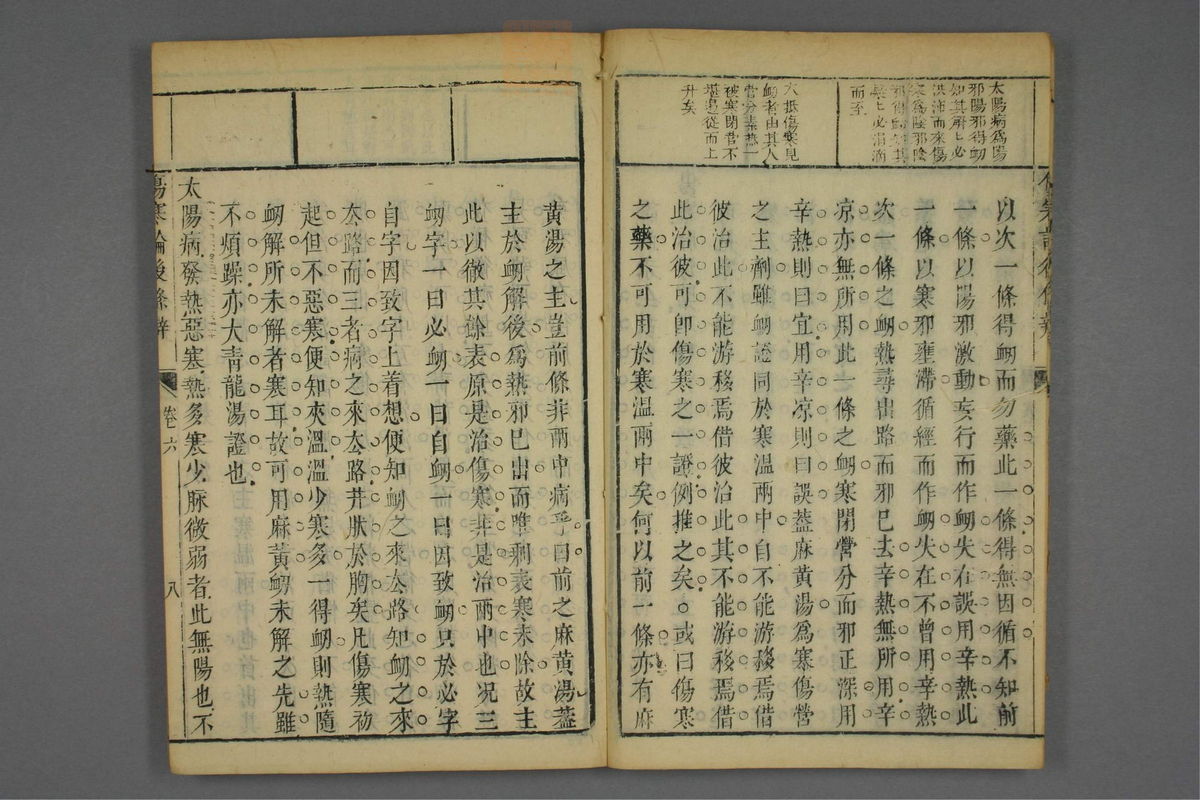 太陽病為陽
邪陽邪得衂
知其解也必
洪沛而來傷
寒為陰邪陰
邪得衂知其
解也必涓滴
而至
大抵傷寒見
衂者由其人
營分素熱一
被寒閉營不
堪遏從而上
升矣
以次一條得衂而勿藥此一條得無因循不知前
一條以陽邪激動妄行而作衂失在誤用辛熱此
一條以寒邪壅滯循經而作衂失在不曾用辛熱
次一條之衂熱尋出路而邪已去辛熱無所用辛
凉亦無所用此一條之衂寒閉營分而邪正深用
辛熱則曰宜用辛凉則曰誤葢麻黃湯為寒傷營
之主劑雖衂證同於寒溫兩中自不能游移焉借
彼治此不能游移焉借彼治此其不能游移焉借
此治彼可卽傷寒之一證例推之矣○或曰傷寒
之藥不可用於寒溫兩中矣何以前一條亦有麻
黃湯之主豈前條非兩中病乎曰前之麻黃湯葢
主於衂解後為熱邪已出而唯剩表寒未除故主
此以徹其餘表原是治傷寒非是治兩中也况三
衂字一曰必衂一曰自衂一曰因致衂只於必字
自字因致字上着想便知衂之來厺路知衂之來
厺路而三者病之來厺路井肰於胸矣凡傷寒初
起但不惡寒便知夾溫溫少寒多一得衂則熱隨
衂解所未解者寒耳故可用麻黃衂未解之先雖
不煩躁亦大青龍湯證也
太陽病發熱惡寒熱多寒少脉微弱者此無陽也不
傷寒論後條辨
卷六
八